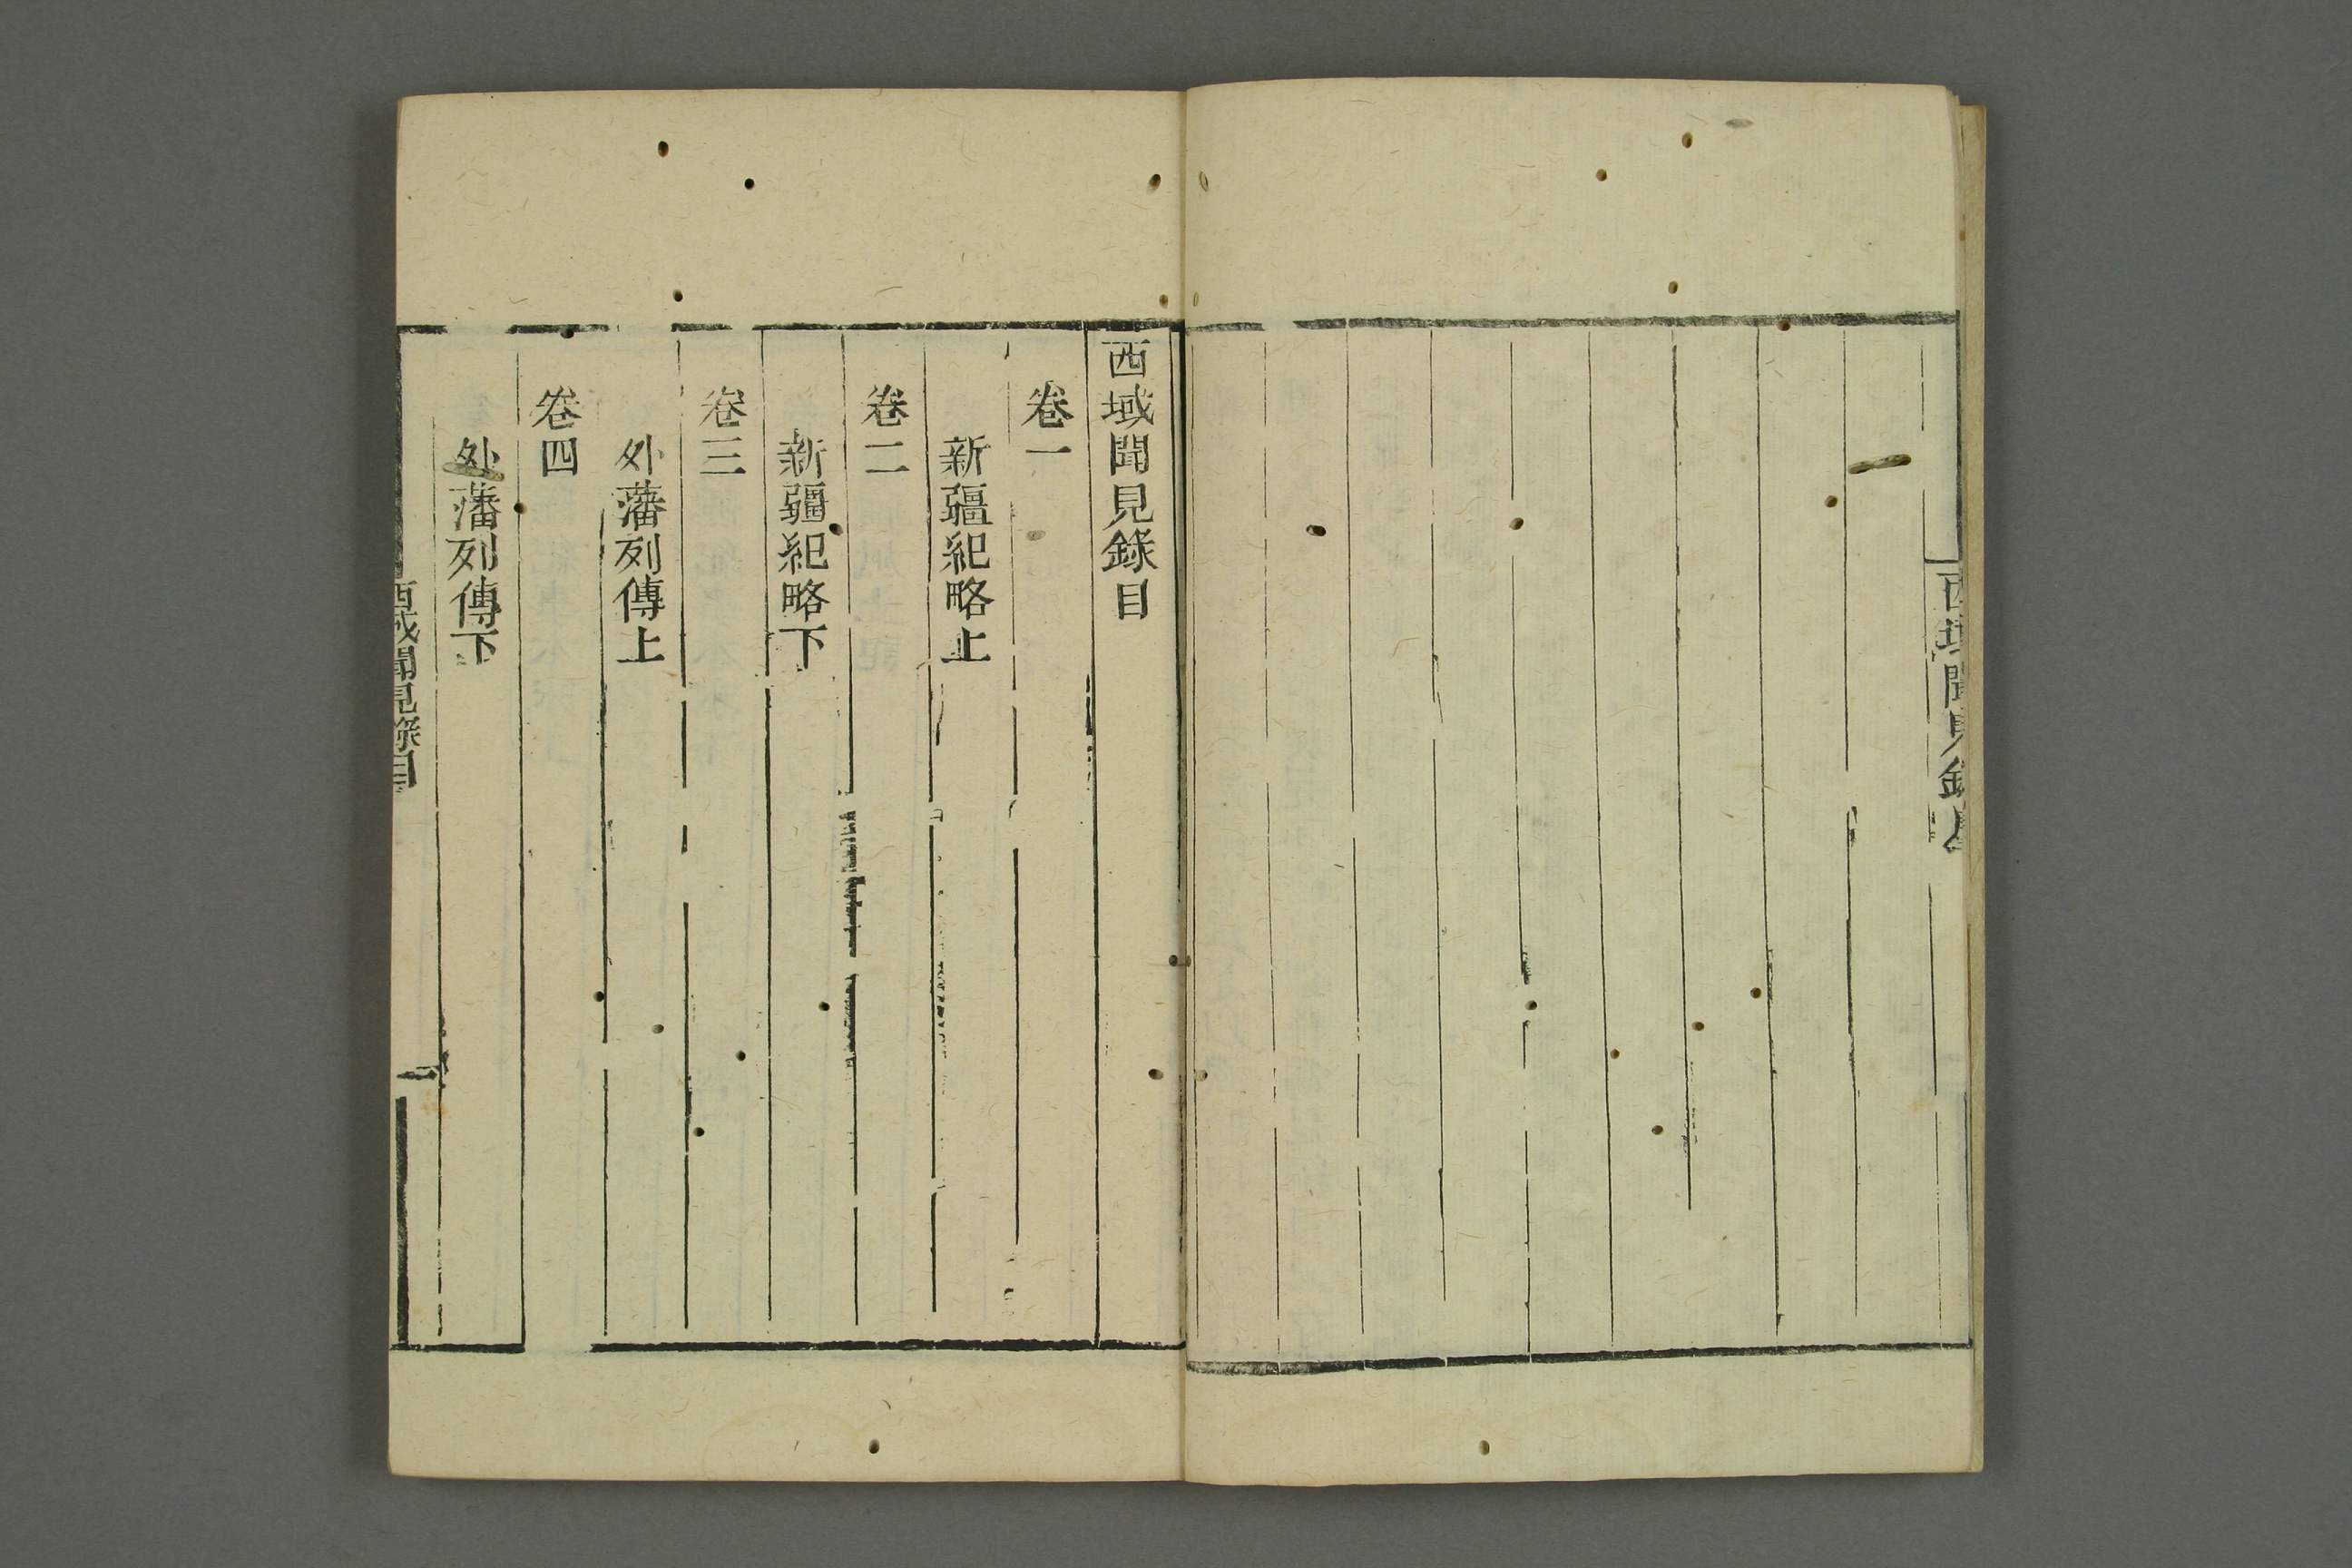 西域聞見錄
西域聞見錄目
卷一
新疆紀略上
卷二
新疆紀略下
卷三
外藩列傳上
卷四
外藩列傳下
西域聞見錄目
一